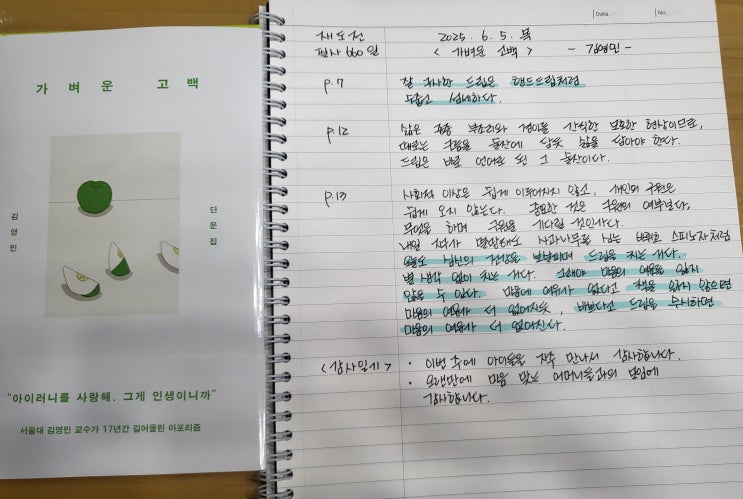 가벼운 고백
김영민
단문집
“아이러니를 사랑해. 그게 인생이니까”
서울대 김영민 교수가 17년간 길어올린 아포리즘
Data.
No.
재도전
2025. 6. 5. 목
필사 660일
<가벼운 고백>
- 김영민 -
p.7
잘 구사한 드립은 핸드드립처럼
두껍고 섬세하다.
p.12
삶은 종종 부조리와 경이를 간직한 모호한 현상이므로,
때로는 구름을 농산에 담듯 삶을 담아야 한다.
드립은 바로 언어로 된 그
p.13
사회적 이상은 쉽게 이루어지지 않고, 개인의 구원은
쉽게 오지 않는다. 중요한 것은 구원의 여부보다,
무엇을 하며 구원을 기다릴 것인가다.
내일 지구가 멸망해도 사과나무를 심는 바뤼흐 스피노자처럼
오늘도 심신의 건강을 보살피며 드립을 치는 거다.
별 생각 없이 치는 거다. 그래야 마음의 여유를 잃지
않을 수 있다. 마음에 여유가 없다고 책을 읽지 않으면
마음의 여유가 더 없어지듯, 바쁘다고 드립을 무시하면
마음의 여유가 더 없어진다.
<감사일기>
· 이번 주에 아이들을 자주 만나서 감사합니다.
· 오랜만에 마음 맞는 어머니들과의 모임에
감사합니다.